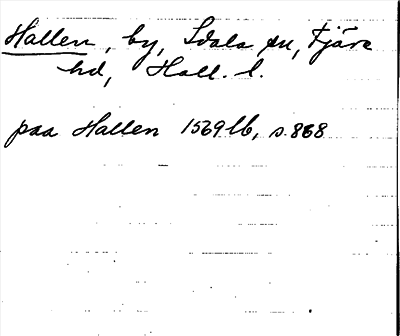 Hallen, by, Idala sn, Fjäre
hd, Hall. l.
paa Hallen 1569 lb, s. 868